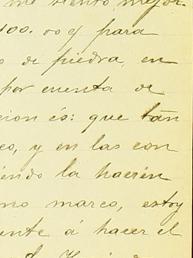 me siento mejor
100.00 y para
s de piedra, en
por cuenta de
cion és: que tan
eo, y en las con
iendo la hacién
mo marco, estoy
ente á hacer el